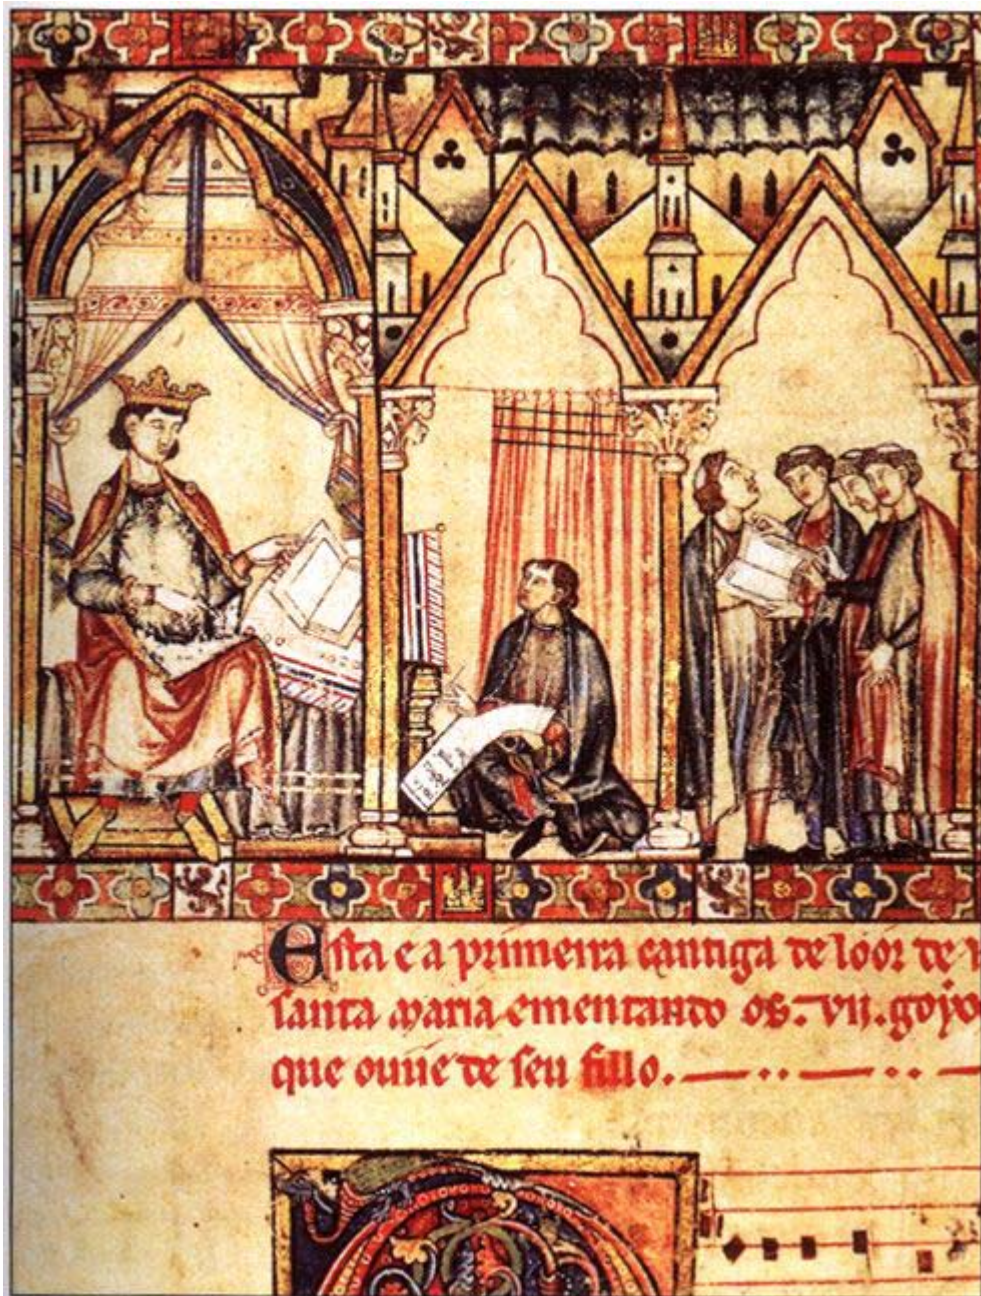 Esta e a primeira cantiga de loor de
santa maria ementando os .VII. goyo
que ouue de seu fillo.